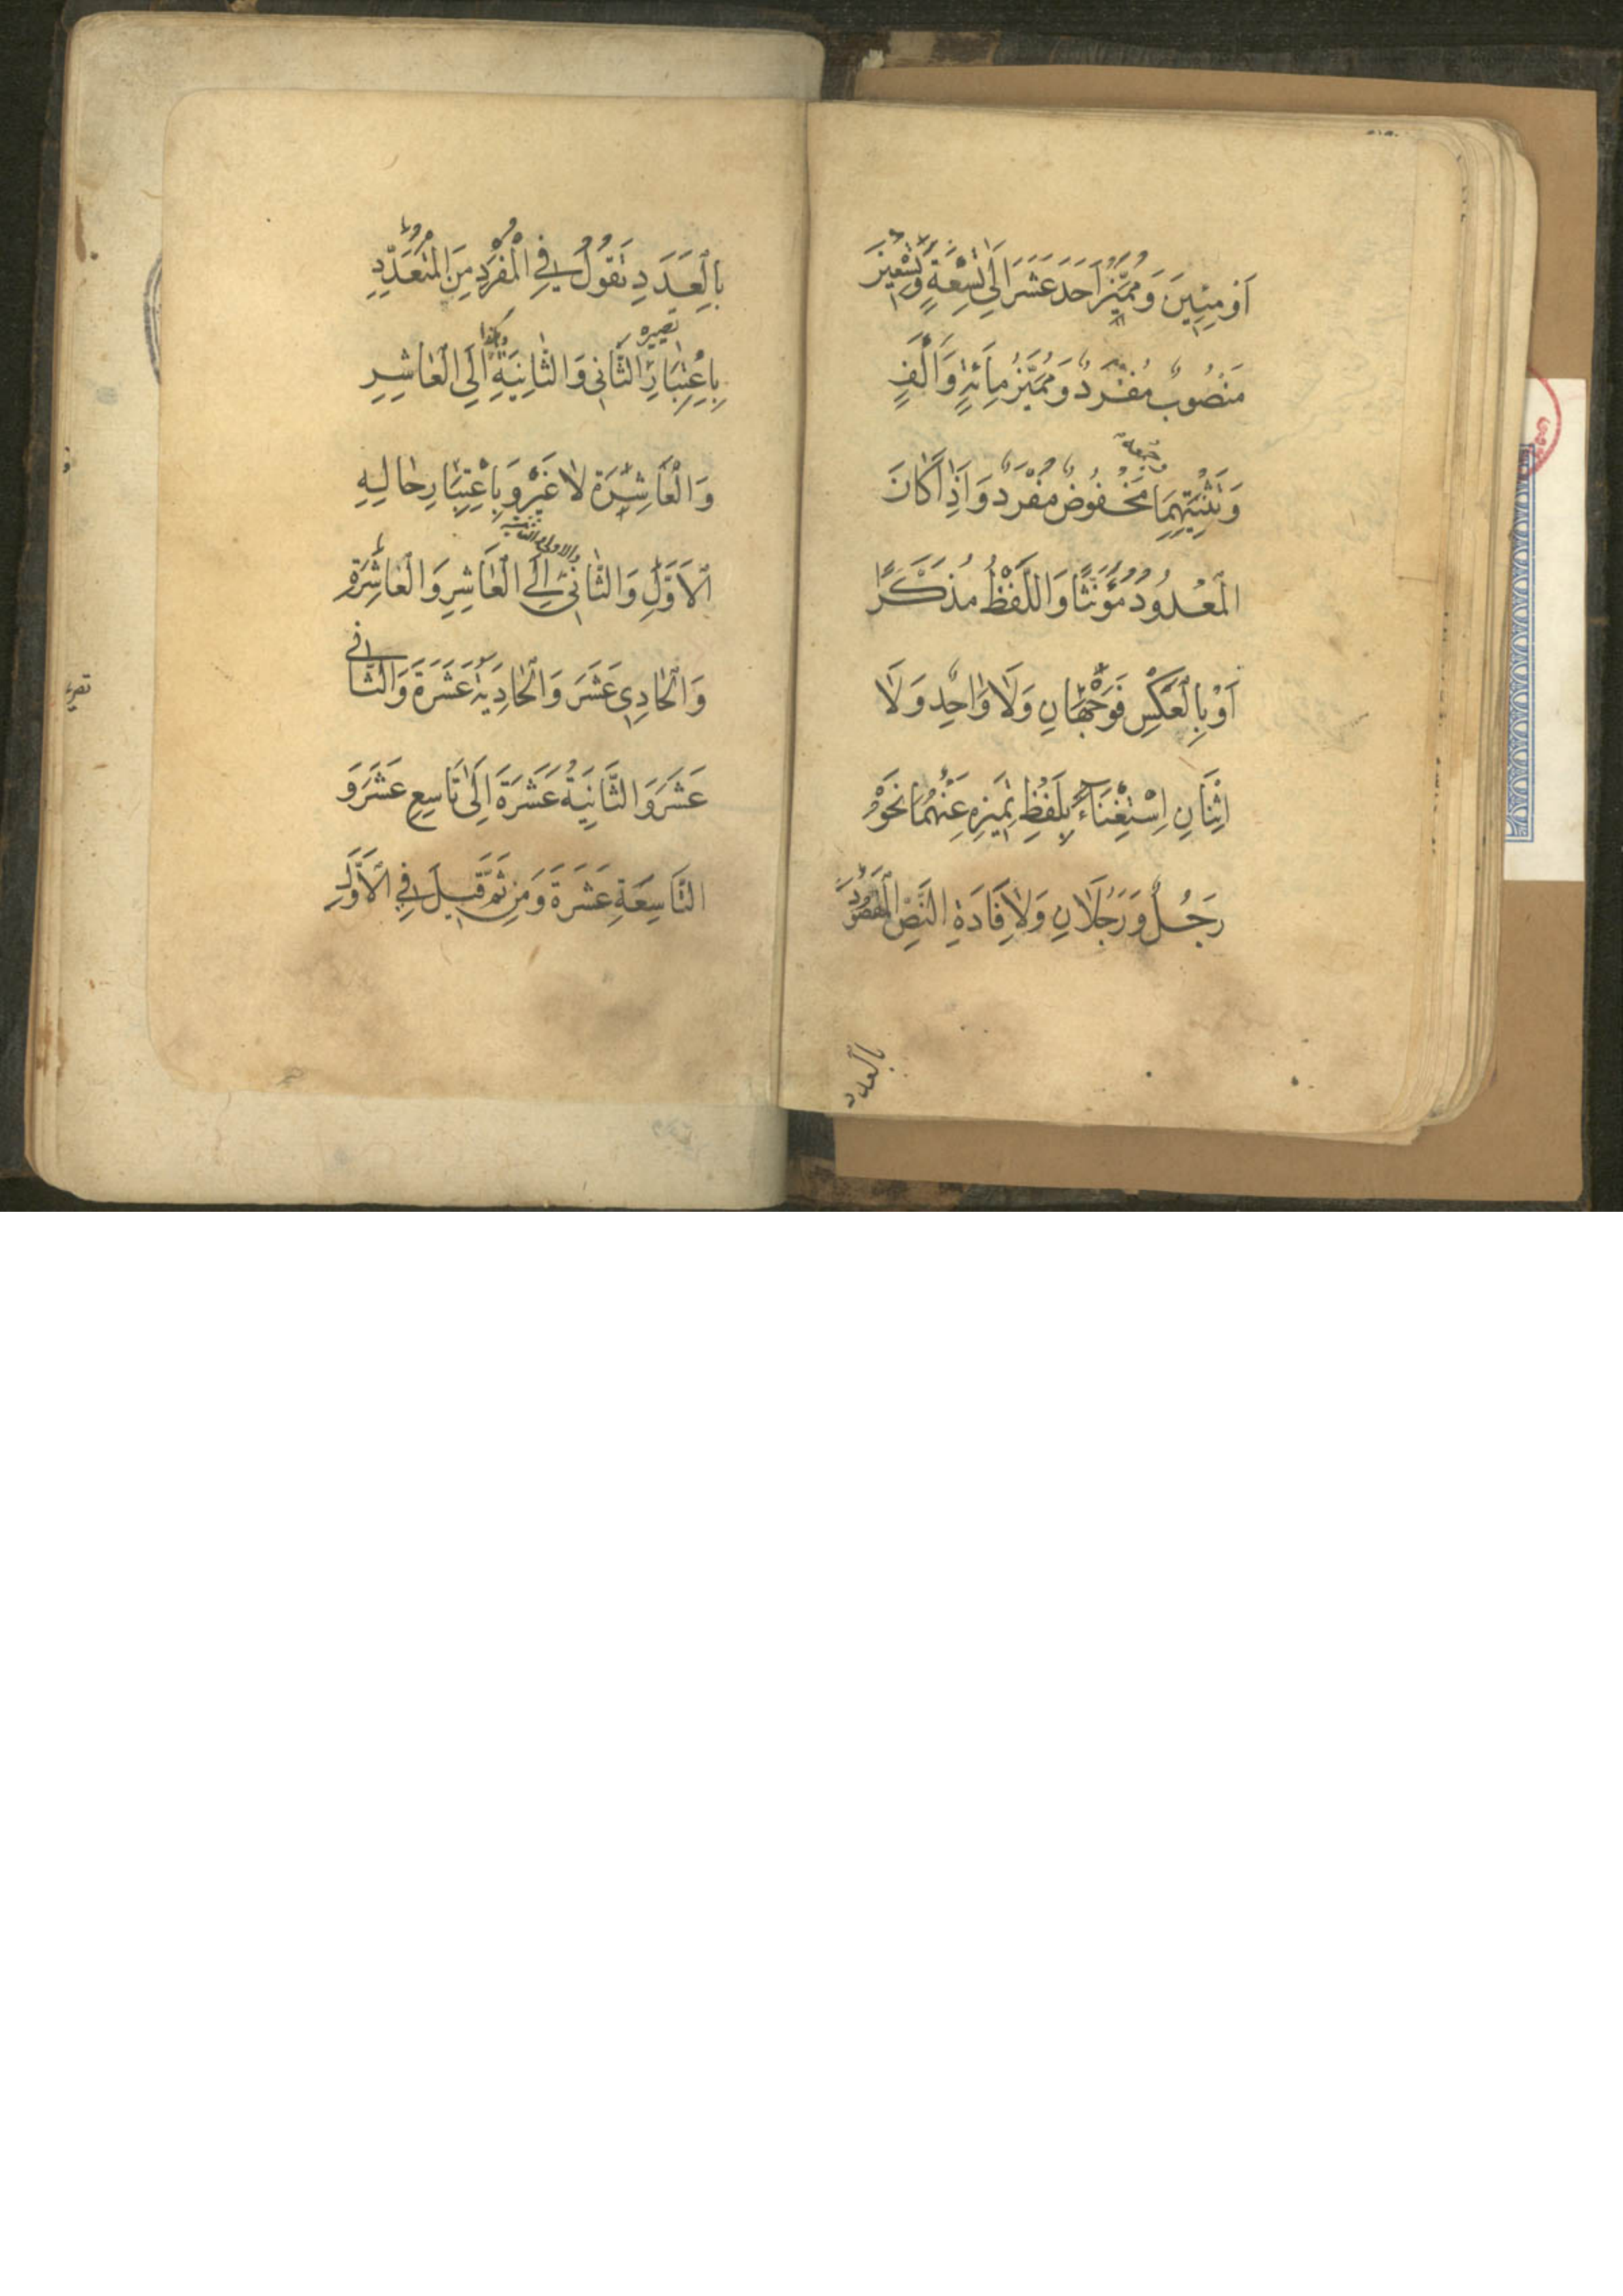 اَوْ مِئِينَ وَمُمَيِّزُ اَحَدَ عَشَرَ اِلَى تِسْعَةٍ وَتِسْعِينَ
مَنْصُوبٌ مُفْرَدٌ وَمُمَيِّزُ مِائَةٍ وَاَلْفٍ
وجمعه
وَتَثْنِيَتِهِمَا مَخْفُوضٌ مُفْرَدٌ وَاِذَا كَانَ
الْمَعْدُودُ مُؤَنَّثًا وَاللَّفْظُ مُذَكَّرًا
اَوْ بِالْعَكْسِ فَوَجْهَانِ وَلَا وَاحِدٌ وَلَا
اِثْنَانِ اِسْتِغْنَاءً بِلَفْظِ تَمِيزِهِ عَنْهُمَا نَحْوُ
رَجُلٌ وَرَجُلَانِ وَلِاِفَادَةِ النَّصِّ الْمَقْصُودَ
بالعدد
بِالْعَدَدِ تَقُولُ فِي الْمُفْرَدِ مِنَ الْمُتَعَدِّدِ
تصييره
وهكذا
بِاعْتِبَارِ الثَّانِي وَالثَّانِيَةُ اِلَى الْعَاشِرِ
وَالْعَاشِرَةِ لَا غَيْرُ وَبِاعْتِبَارِ حَالِهِ
والاولى والثانية
الْاَوَّلِ وَالثَّانِي اِلَى الْعَاشِرِ وَالْعَاشِرَةِ
وَالْحَادِي عَشَرَ وَالْحَادِيَةَ عَشَرَةَ وَالثَّانِي
عَشَرَ وَالثَّانِيَةُ عَشَرَةَ اِلَى تَاسِعِ عَشَرَ وَ
التَّاسِعَةِ عَشَرَةَ وَمِنْ ثَمَّ قِيلَ فِي الْاَوَّلِ